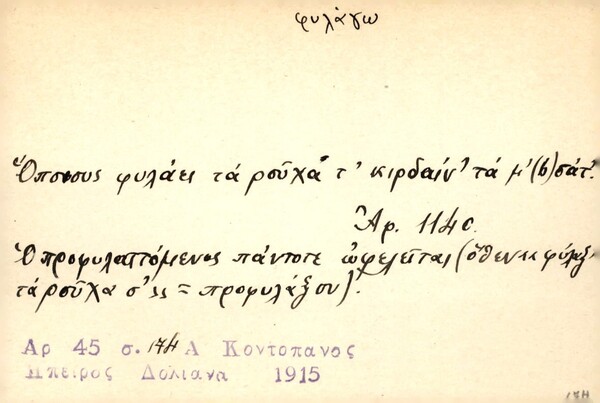 φυλάγω
Ὅποιους φυλάει τά ροῦχα τ' κιρδαίν' τά μ'(b)σάτ'.
Ἀρ. 114c.
Ὁ προφυλαττόμενος πάντοτε ὠφελεῖται (ὅθεν κ φύλαξ'
τά ροῦχα σ' = προφυλάξου).
Αρ 45 σ. 174 Α Κοντοπανος
Ηπειρος Δολιανα 1915
174